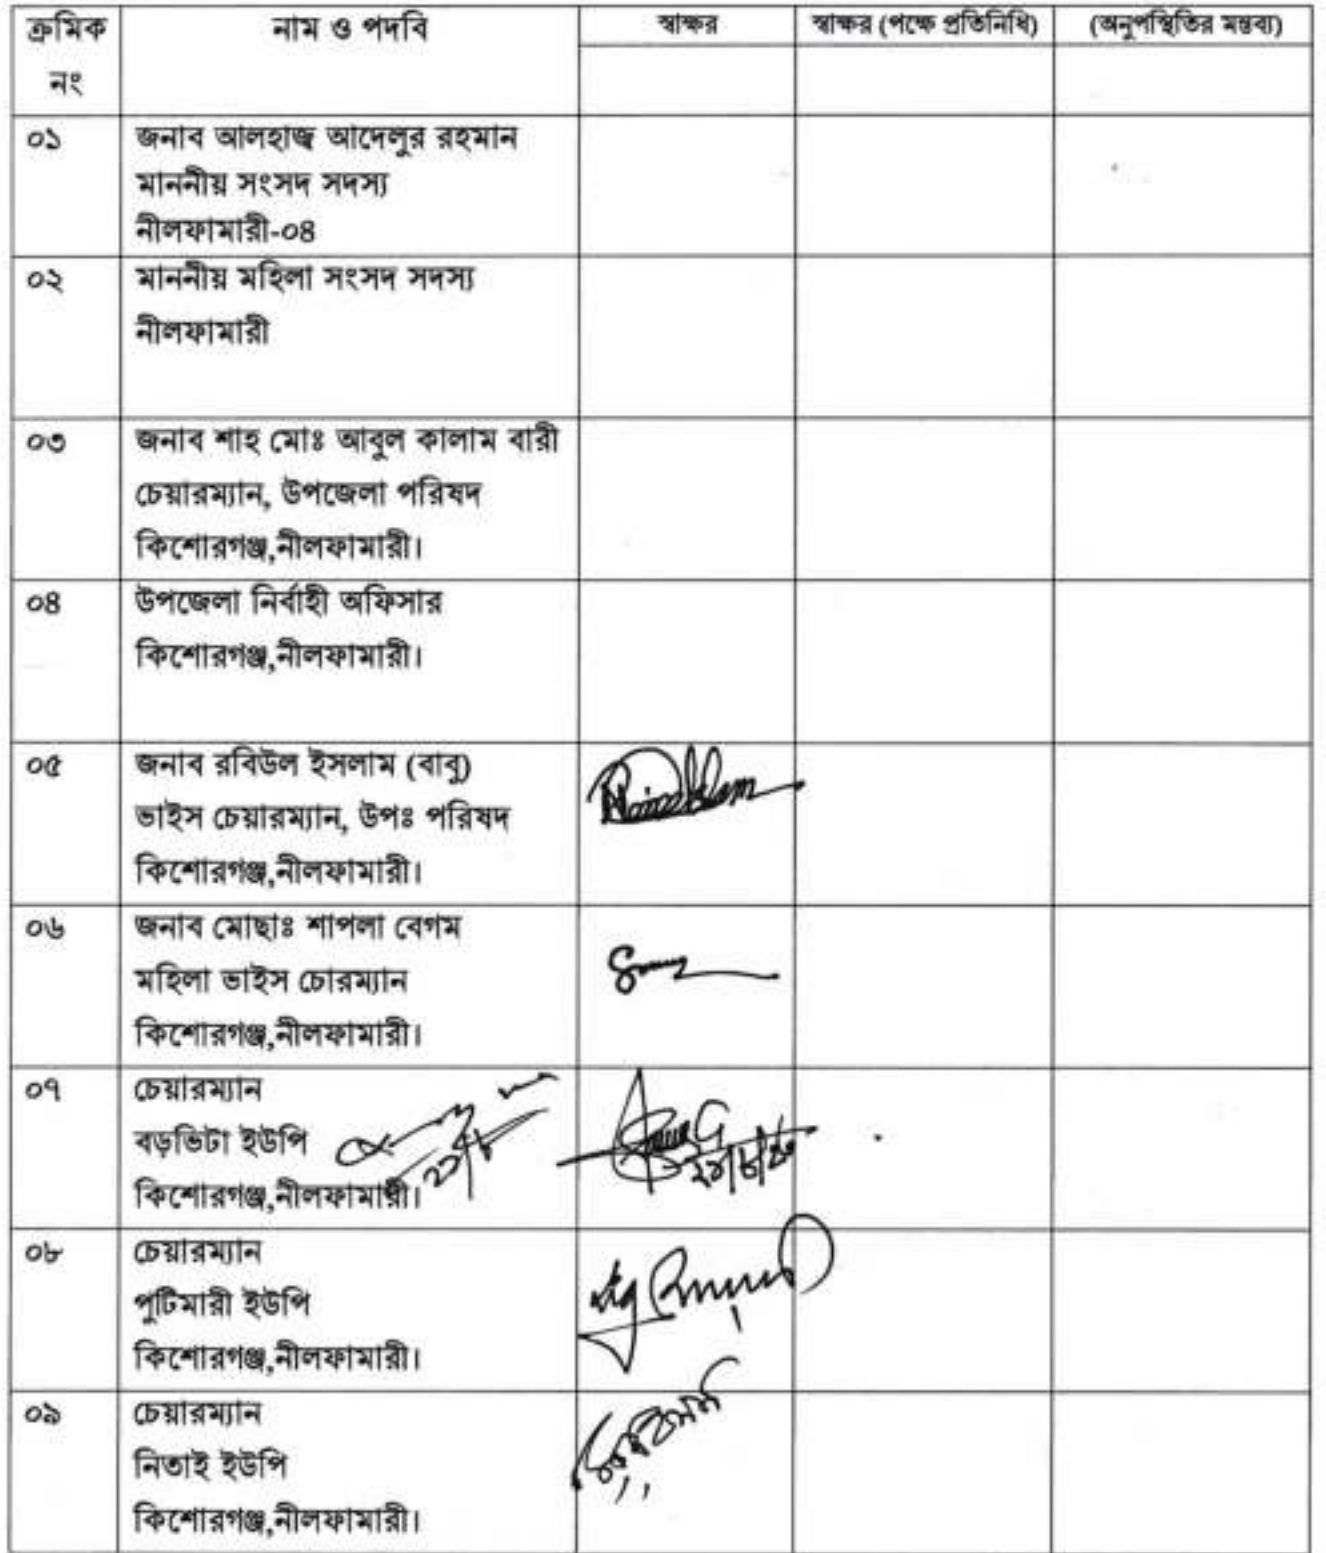 ক্রমিক নং
নাম ও পদবি
স্বাক্ষর
স্বাক্ষর (পক্ষে প্রতিনিধি)
(অনুপস্থিতির মন্তব্য)
০১
জনাব আলহাজ্ব আদেলুর রহমান
মাননীয় সংসদ সদস্য
নীলফামারী-০৪
০২
মাননীয় মহিলা সংসদ সদস্য
নীলফামারী
০৩
জনাব শাহ মোঃ আবুল কালাম বারী
চেয়ারম্যান, উপজেলা পরিষদ
কিশোরগঞ্জ,নীলফামারী।
০৪
উপজেলা নির্বাহী অফিসার
কিশোরগঞ্জ,নীলফামারী।
০৫
জনাব রবিউল ইসলাম (বাবু)
ভাইস চেয়ারম্যান, উপঃ পরিষদ
কিশোরগঞ্জ,নীলফামারী।
০৬
জনাব মোছাঃ শাপলা বেগম
মহিলা ভাইস চোরম্যান
কিশোরগঞ্জ,নীলফামারী।
০৭
চেয়ারম্যান
বড়ভিটা ইউপি
কিশোরগঞ্জ,নীলফামারী।
০৮
চেয়ারম্যান
পুটিমারী ইউপি
কিশোরগঞ্জ,নীলফামারী।
০৯
চেয়ারম্যান
নিতাই ইউপি
কিশোরগঞ্জ,নীলফামারী।